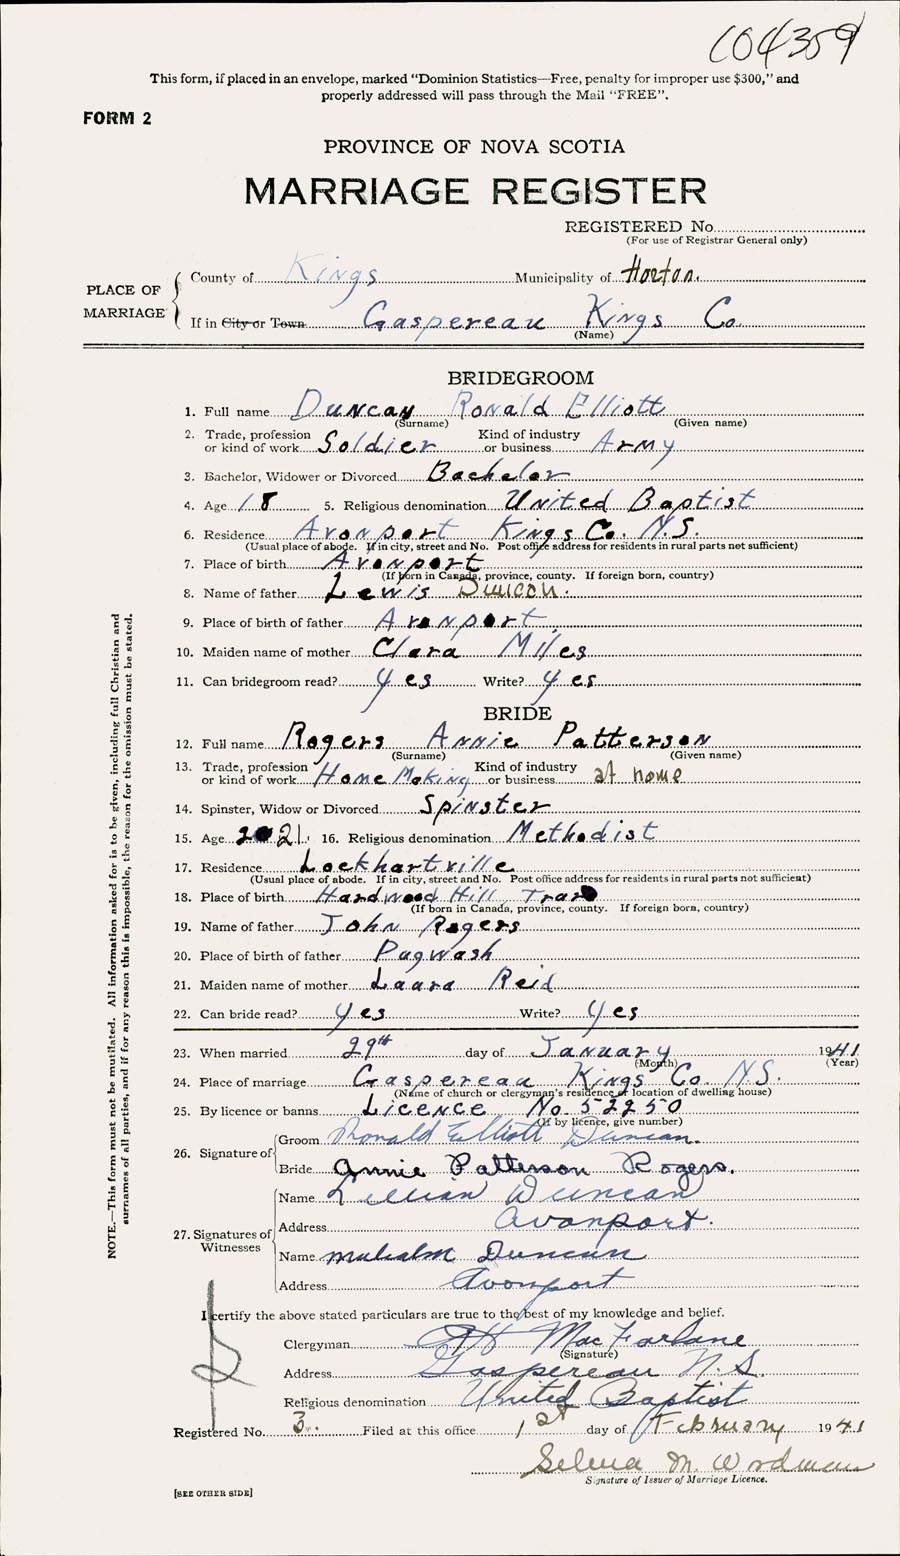 104359
This form, if placed in an envelope, marked "Dominion Statistics—Free, penalty for improper use $300," and
properly addressed will pass through the Mail "FREE".
FORM 2
PROVINCE OF NOVA SCOTIA
MARRIAGE REGISTER
REGISTERED No.
(For use of Registrar General only)
PLACE OF MARRIAGE
County of Kings Municipality of Horton.
If in City or Town Gaspereau Kings Co.
(Name)
BRIDEGROOM
1. Full name Duncan Ronald Elliott
(Surname) (Given name)
2. Trade, profession or kind of work Soldier Kind of industry or business Army
3. Bachelor, Widower or Divorced Bachelor
4. Age 18 5. Religious denomination United Baptist
6. Residence Avonport Kings Co. N.S.
(Usual place of abode. If in city, street and No. Post office address for residents in rural parts not sufficient)
7. Place of birth Avonport
(If born in Canada, province, county. If foreign born, country)
8. Name of father Lewis Duncan.
9. Place of birth of father Avonport
10. Maiden name of mother Clara Miles
11. Can bridegroom read? yes Write? yes
BRIDE
12. Full name Rogers Annie Patterson
(Surname) (Given name)
13. Trade, profession or kind of work Home Making Kind of industry or business at home
14. Spinster, Widow or Divorced Spinster
15. Age 21 16. Religious denomination Methodist
17. Residence Lockhartville
(Usual place of abode. If in city, street and No. Post office address for residents in rural parts not sufficient)
18. Place of birth Hardwood Hill
(If born in Canada, province, county. If foreign born, country)
19. Name of father John Rogers
20. Place of birth of father Pugwash
21. Maiden name of mother Laura Reid
22. Can bride read? yes Write? yes
23. When married 29th day of January 1941
(Month) (Year)
24. Place of marriage Gaspereau Kings Co. N.S.
(Name of church or clergyman's residence or location of dwelling house)
25. By licence or banns Licence No. 52250
(If by licence, give number)
26. Signature of
Groom Ronald Elliott Duncan.
Bride Annie Patterson Rogers.
27. Signatures of Witnesses
Name Lillian Duncan
Address Avonport.
Name Malcolm Duncan
Address Avonport
I certify the above stated particulars are true to the best of my knowledge and belief.
Clergyman MacFarlane
(Signature)
Address Gaspereau N.S.
Religious denomination United Baptist
Registered No. 3. Filed at this office 1st day of February 1941
Selma M. Wordman
Signature of Issuer of Marriage Licence.
[SEE OTHER SIDE]
NOTE.—This form must not be mutilated. All information asked for is to be given, including full Christian and
surnames of all parties, and if for any reason this is impossible, the reason for the omission must be stated.